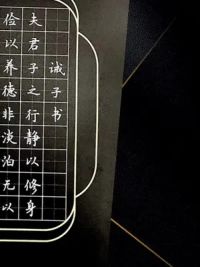 诫子书
夫君子之行静以修身
俭以养德非淡泊无以